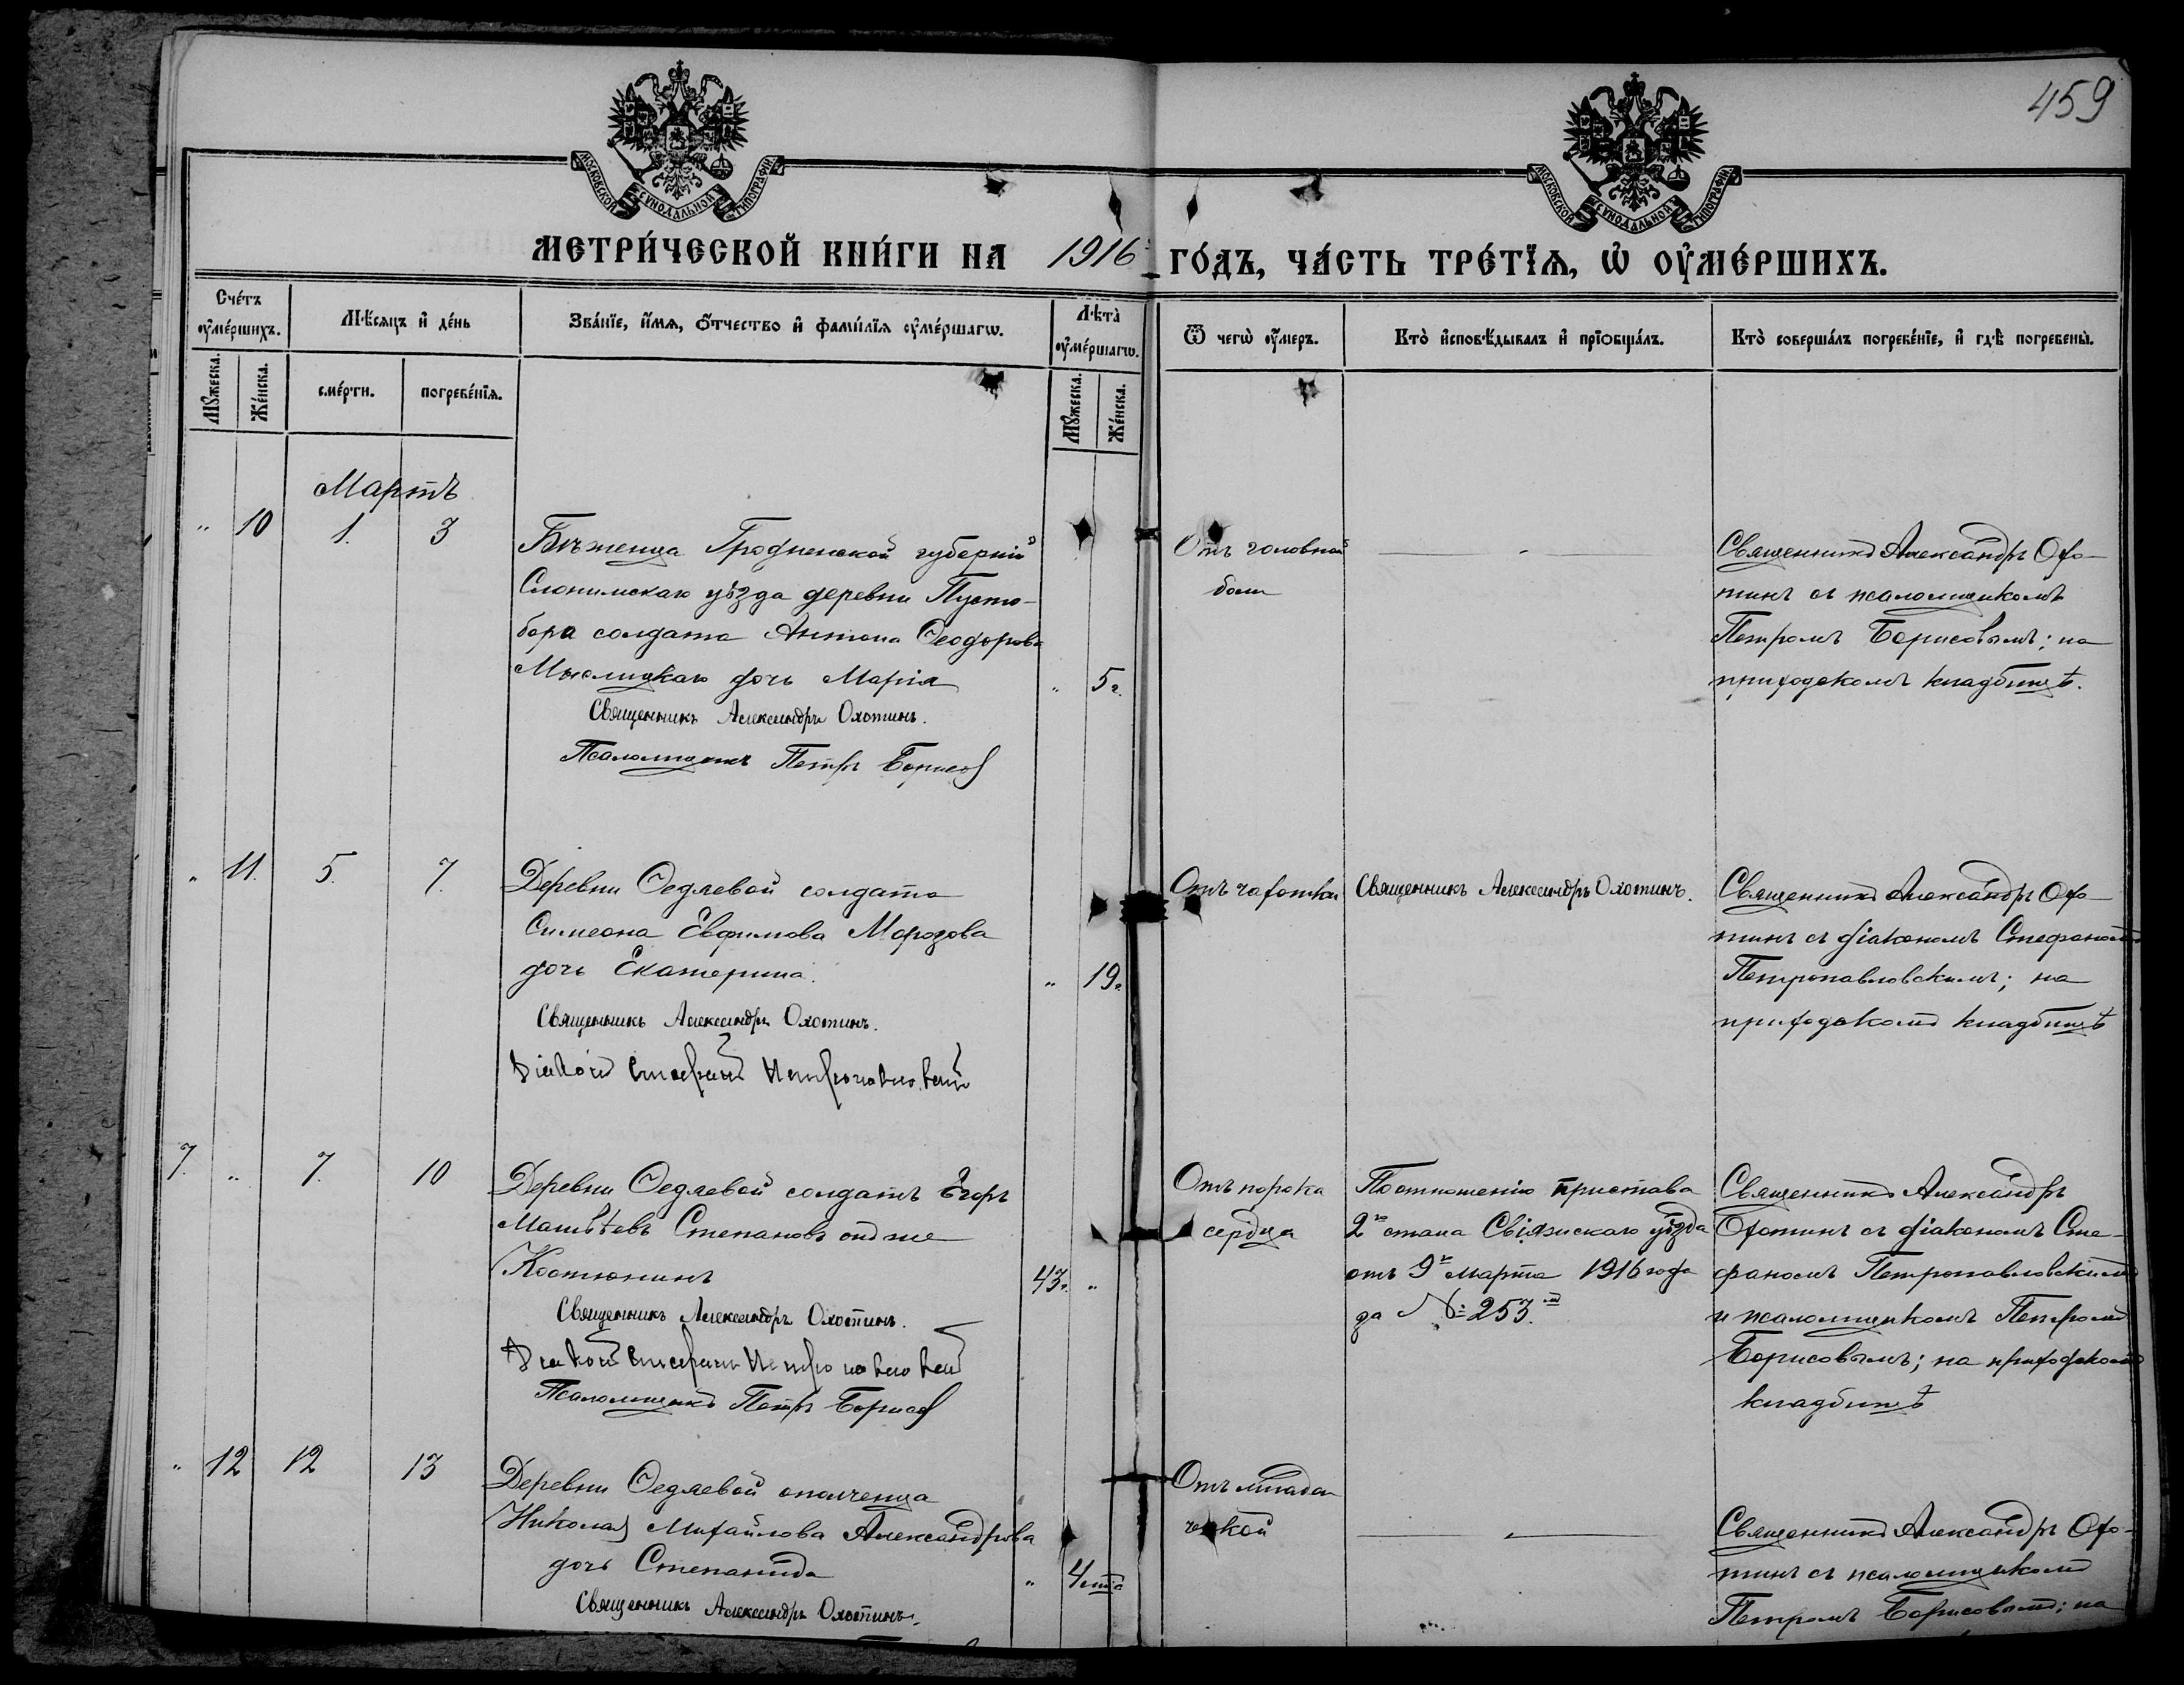 459
МОСКОВСКОЙ СѴНОДАЛЬНОЙ ТИПОГРАФІИ
МОСКОВСКОЙ СѴНОДАЛЬНОЙ ТИПОГРАФІИ
МЕТРИ́ЧЕСКОЙ КНИ́ГИ НА 1916 ГО́ДЪ, ЧА́СТЬ ТРЕ́ТЇѦ, Ѡ ОУ҆МЕ́РШИХЪ.
Сче́тъ оу҆ме́ршихъ.
Мꙋжеска.
Же́нска.
Мѣ́сяцъ и҆ де́нь
сме́рти.
погребе́нїѧ.
Зва́нїе, и҆́мѧ, ѻ҆́тчество и҆ фами́лїѧ оу҆ме́ршагѡ.
Лѣ́та̀ оу҆ме́ршагѡ.
Мꙋжеска.
Же́нска.
Ѿ чегѡ̀ оу҆́меръ.
Кто̀ и҆сповѣ́дывалъ и҆ прїобща́лъ.
Кто̀ соверша́лъ погребе́нїе, и҆ гдѣ̀ погребены̀.
Мартъ
" 10 1. 3
Бѣженца Гродненской губерніи
Слонимскаго уѣзда деревни Пусто-
бора солдата Антона Ѳеодорова
Мыслицкаго дочь Марія
" 5 г.
Священникъ Александръ Охотинъ.
Псаломщикъ Петръ Борисов
Отъ головной
боли
Священникъ Александръ Охо-
тинъ съ псаломщикомъ
Петромъ Борисовымъ; на
приходскомъ кладбищѣ.
" 11. 5. 7.
Деревни Ѳедяевой солдата
Симеона Евфимова Морозова
дочь Екатерина.
" 19 г.
Священникъ Александръ Охотинъ.
Діаконъ Стефанъ Петропавловскій
Отъ чахотки
Священникъ Александръ Охотинъ.
Священникъ Александръ Охо-
тинъ съ діакономъ Стефаномъ
Петропавловскимъ; на
приходскомъ кладбищѣ
7. " 7. 10
Деревни Ѳедяевой солдатъ Егоръ
Матвѣевъ Степановъ онъ же
Костюнинъ
43 г. "
Священникъ Александръ Охотинъ.
Діаконъ Стефанъ Петропавловскій
Псаломщикъ Петръ Борисов
Отъ порока
сердца
По отношенію пристава
2го стана Свіяжскаго уѣзда
отъ 9го Марта 1916 года
за № 253.
Священникъ Александръ
Охотинъ съ діакономъ Сте-
фаномъ Петропавловскимъ
и псаломщикомъ Петромъ
Борисовымъ; на приходскомъ
кладбищѣ
" 12 12 13
Деревни Ѳедяевой ополченца
Николая Михайлова Александрова
дочь Степанида
" 4
Священникъ Александръ Охотинъ.
Отъ младен
ческой
Священникъ Александръ Охо-
тинъ съ псаломщикомъ
Петромъ Борисовымъ; на